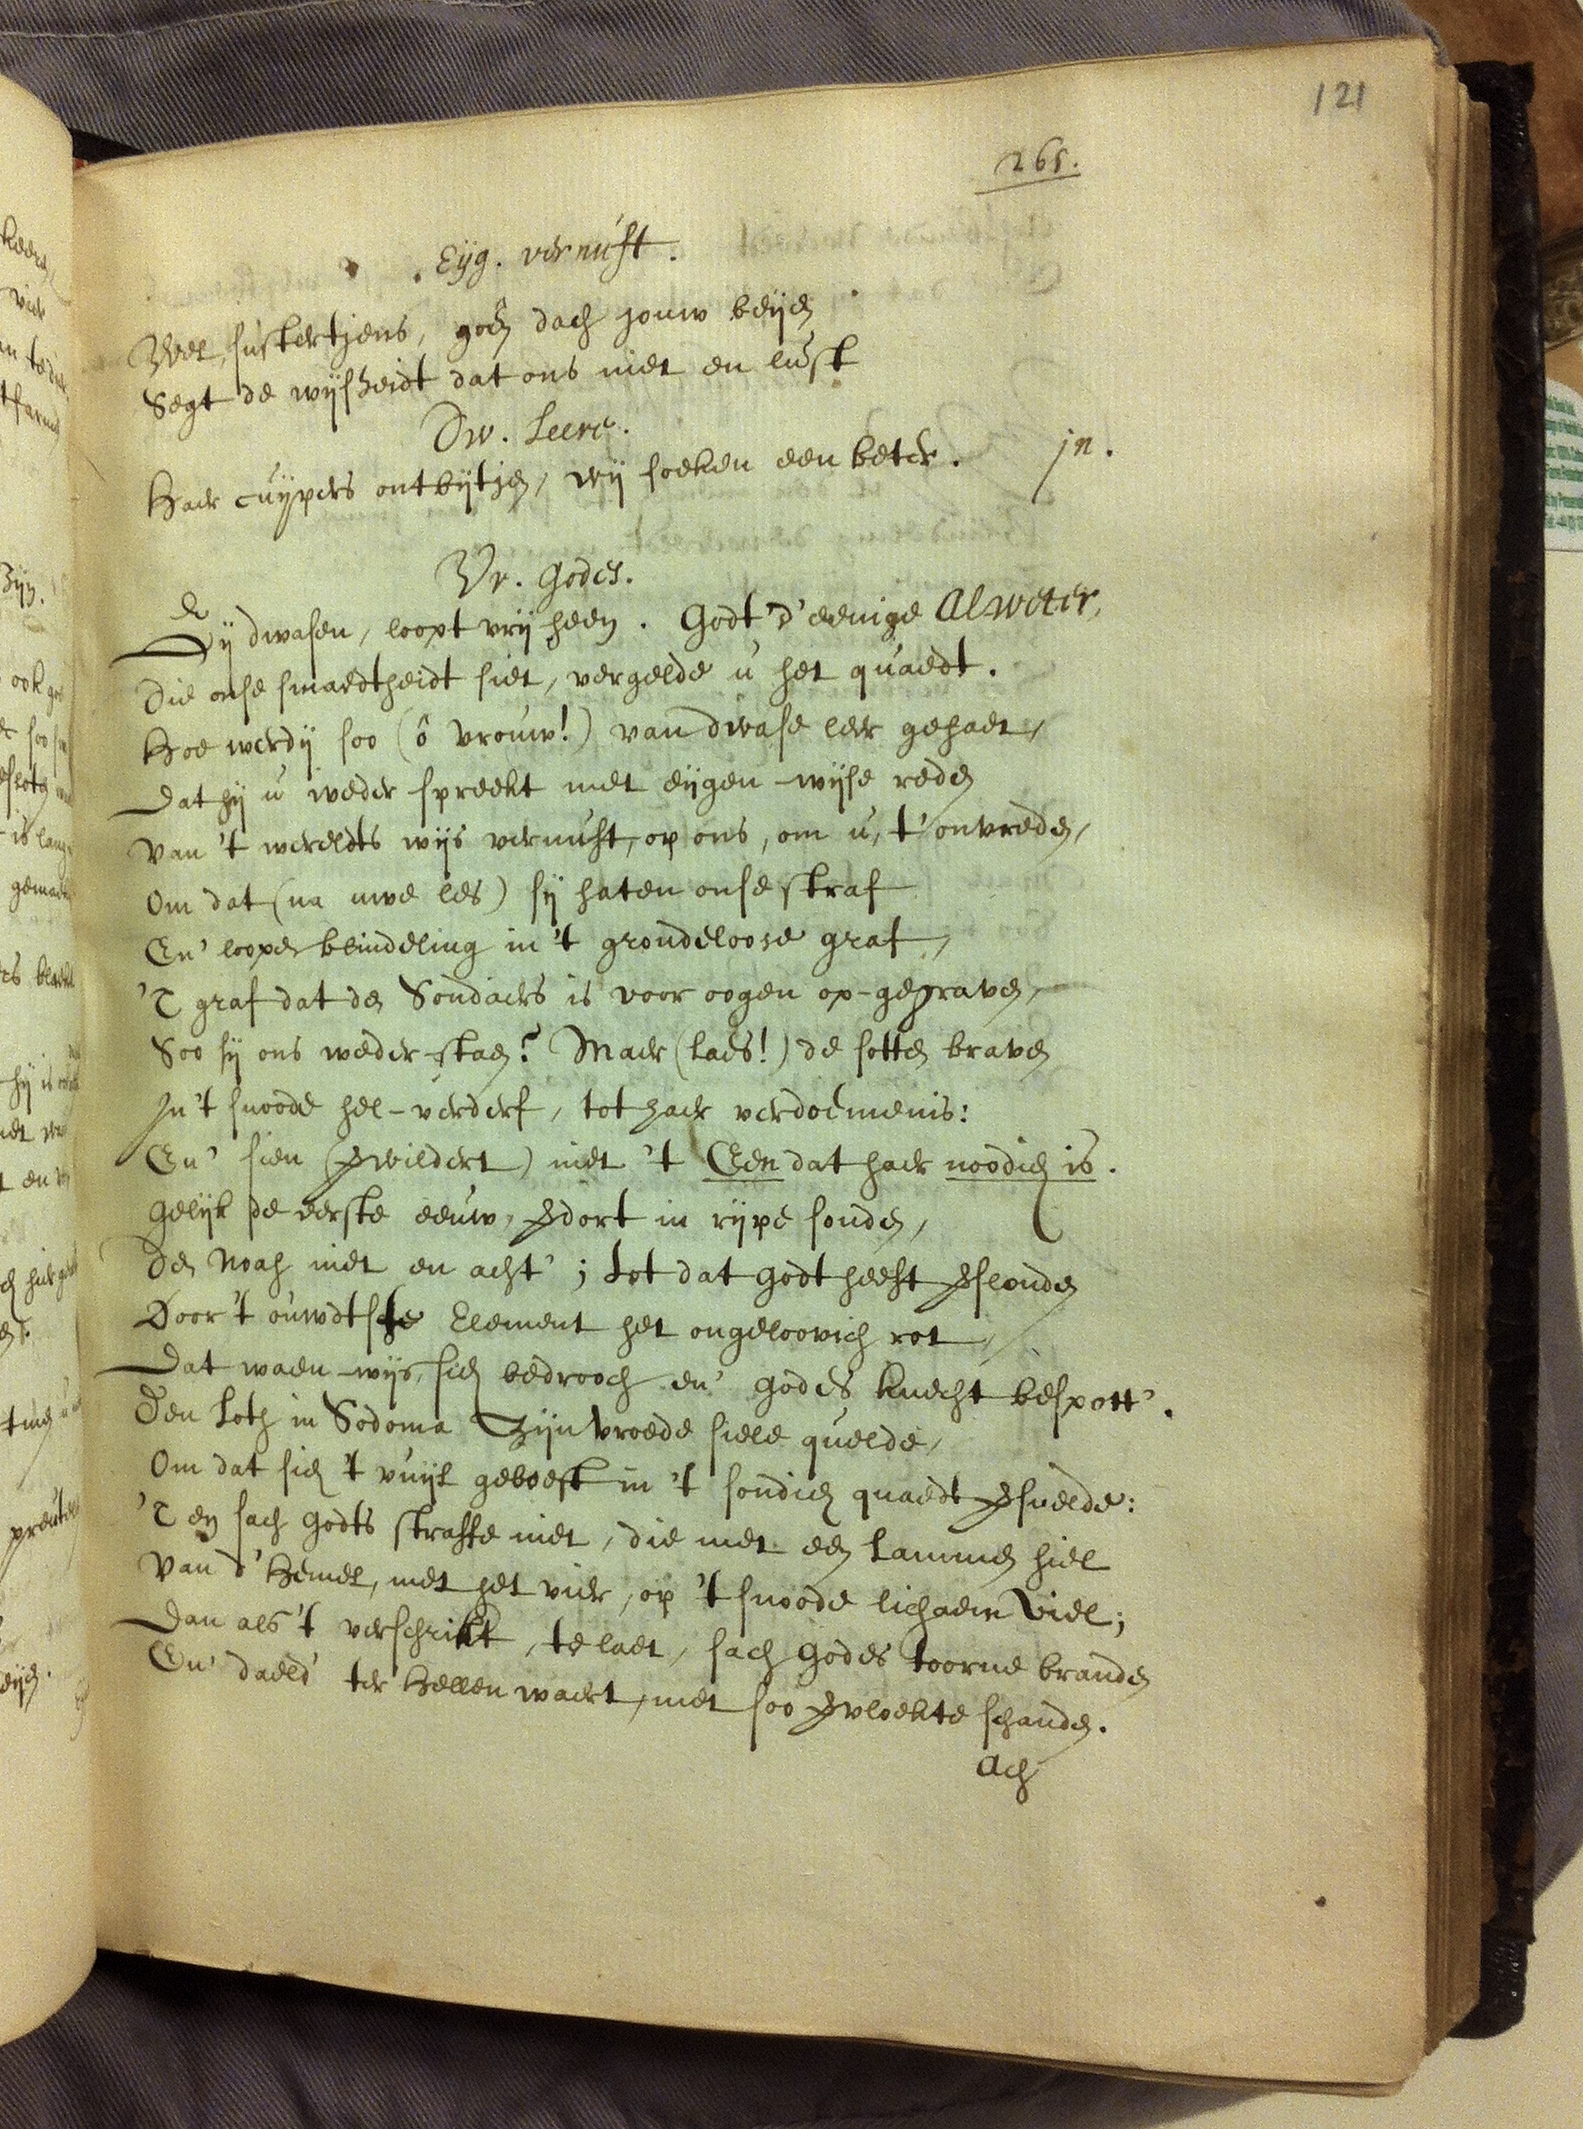 121
265.
Eijg. vernuft.
Wel, sustertjens, goên dach jouw beijen
Segt de wijsheidt dat ons niet en lust
Dw. Leere.
Haer cuijpers ontbijtjen, wij soeken een beter. in.
Vr. Godes.
Gij dwasen, loopt vrij heen. Godt d'eenige Alweter,
Die onse smaedtheidt siet, vergelde u het quaedt.
Hoe werdij soo (ô vrouw!) van dwase leer gehaet,
Dat hij u weder spreekt met eijgen-wijse reden
Van 't werelts wijs vernuft, op ons, om u, t'onvreden,
Om dat (na uwe les) sij haten onse straf
En' loopen blindeling in 't grondeloose graf,
'T graf dat den Sondaers is voor oogen op-gegraven,
Soo sij ons weder-staen? Maer (laes!) de sotten braven
In 't snoode hel-verderf, tot haer verdoemenis:
En' sien (verwildert) niet 't Een dat haer noodich is.
Gelijk de eerste eeuw, verdort in rijpe sonden,
Den Noah niet en acht'; tot dat Godt heeft verslonden
Door 't ouwdtste Element het ongeloovich rot,
Dat waen-wijs, sich bedrooch en' Godes knecht bespott'.
Den Loth in Sodoma Zijn vroede siele quelde,
Om dat sich 't vuijl geboest in 't sondich quaedt versnelde:
'T en sach Godts straffe niet, die met een lammen hiel
Van d'Hemel, met het vier, op 't snoode lichaem viel;
Dan als 't verschrikt, te laet, sach Godes toorne branden
En' daeld' ter Hellen waert, met soo vervloekte schanden.
Ach